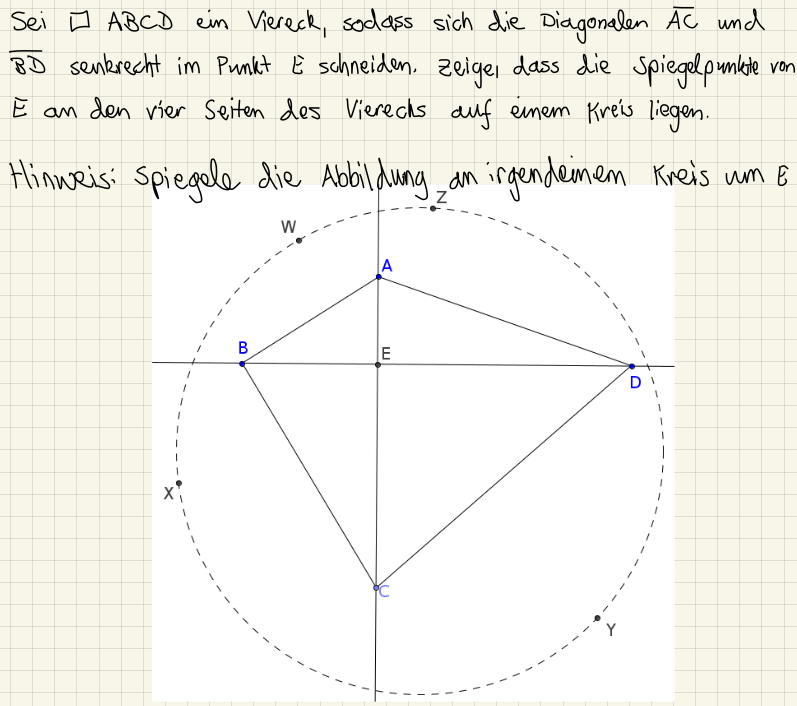 Sei □ ABCD ein Viereck, sodass sich die Diagonalen AC und
BD senkrecht im Punkt E schneiden. Zeige, dass die Spiegelpunkte von
E an den vier Seiten des Vierecks auf einem Kreis liegen.
Hinweis: Spiegele die Abbildung an irgendeinem Kreis um E
Z
W
A
B
E
D
X
C
Y